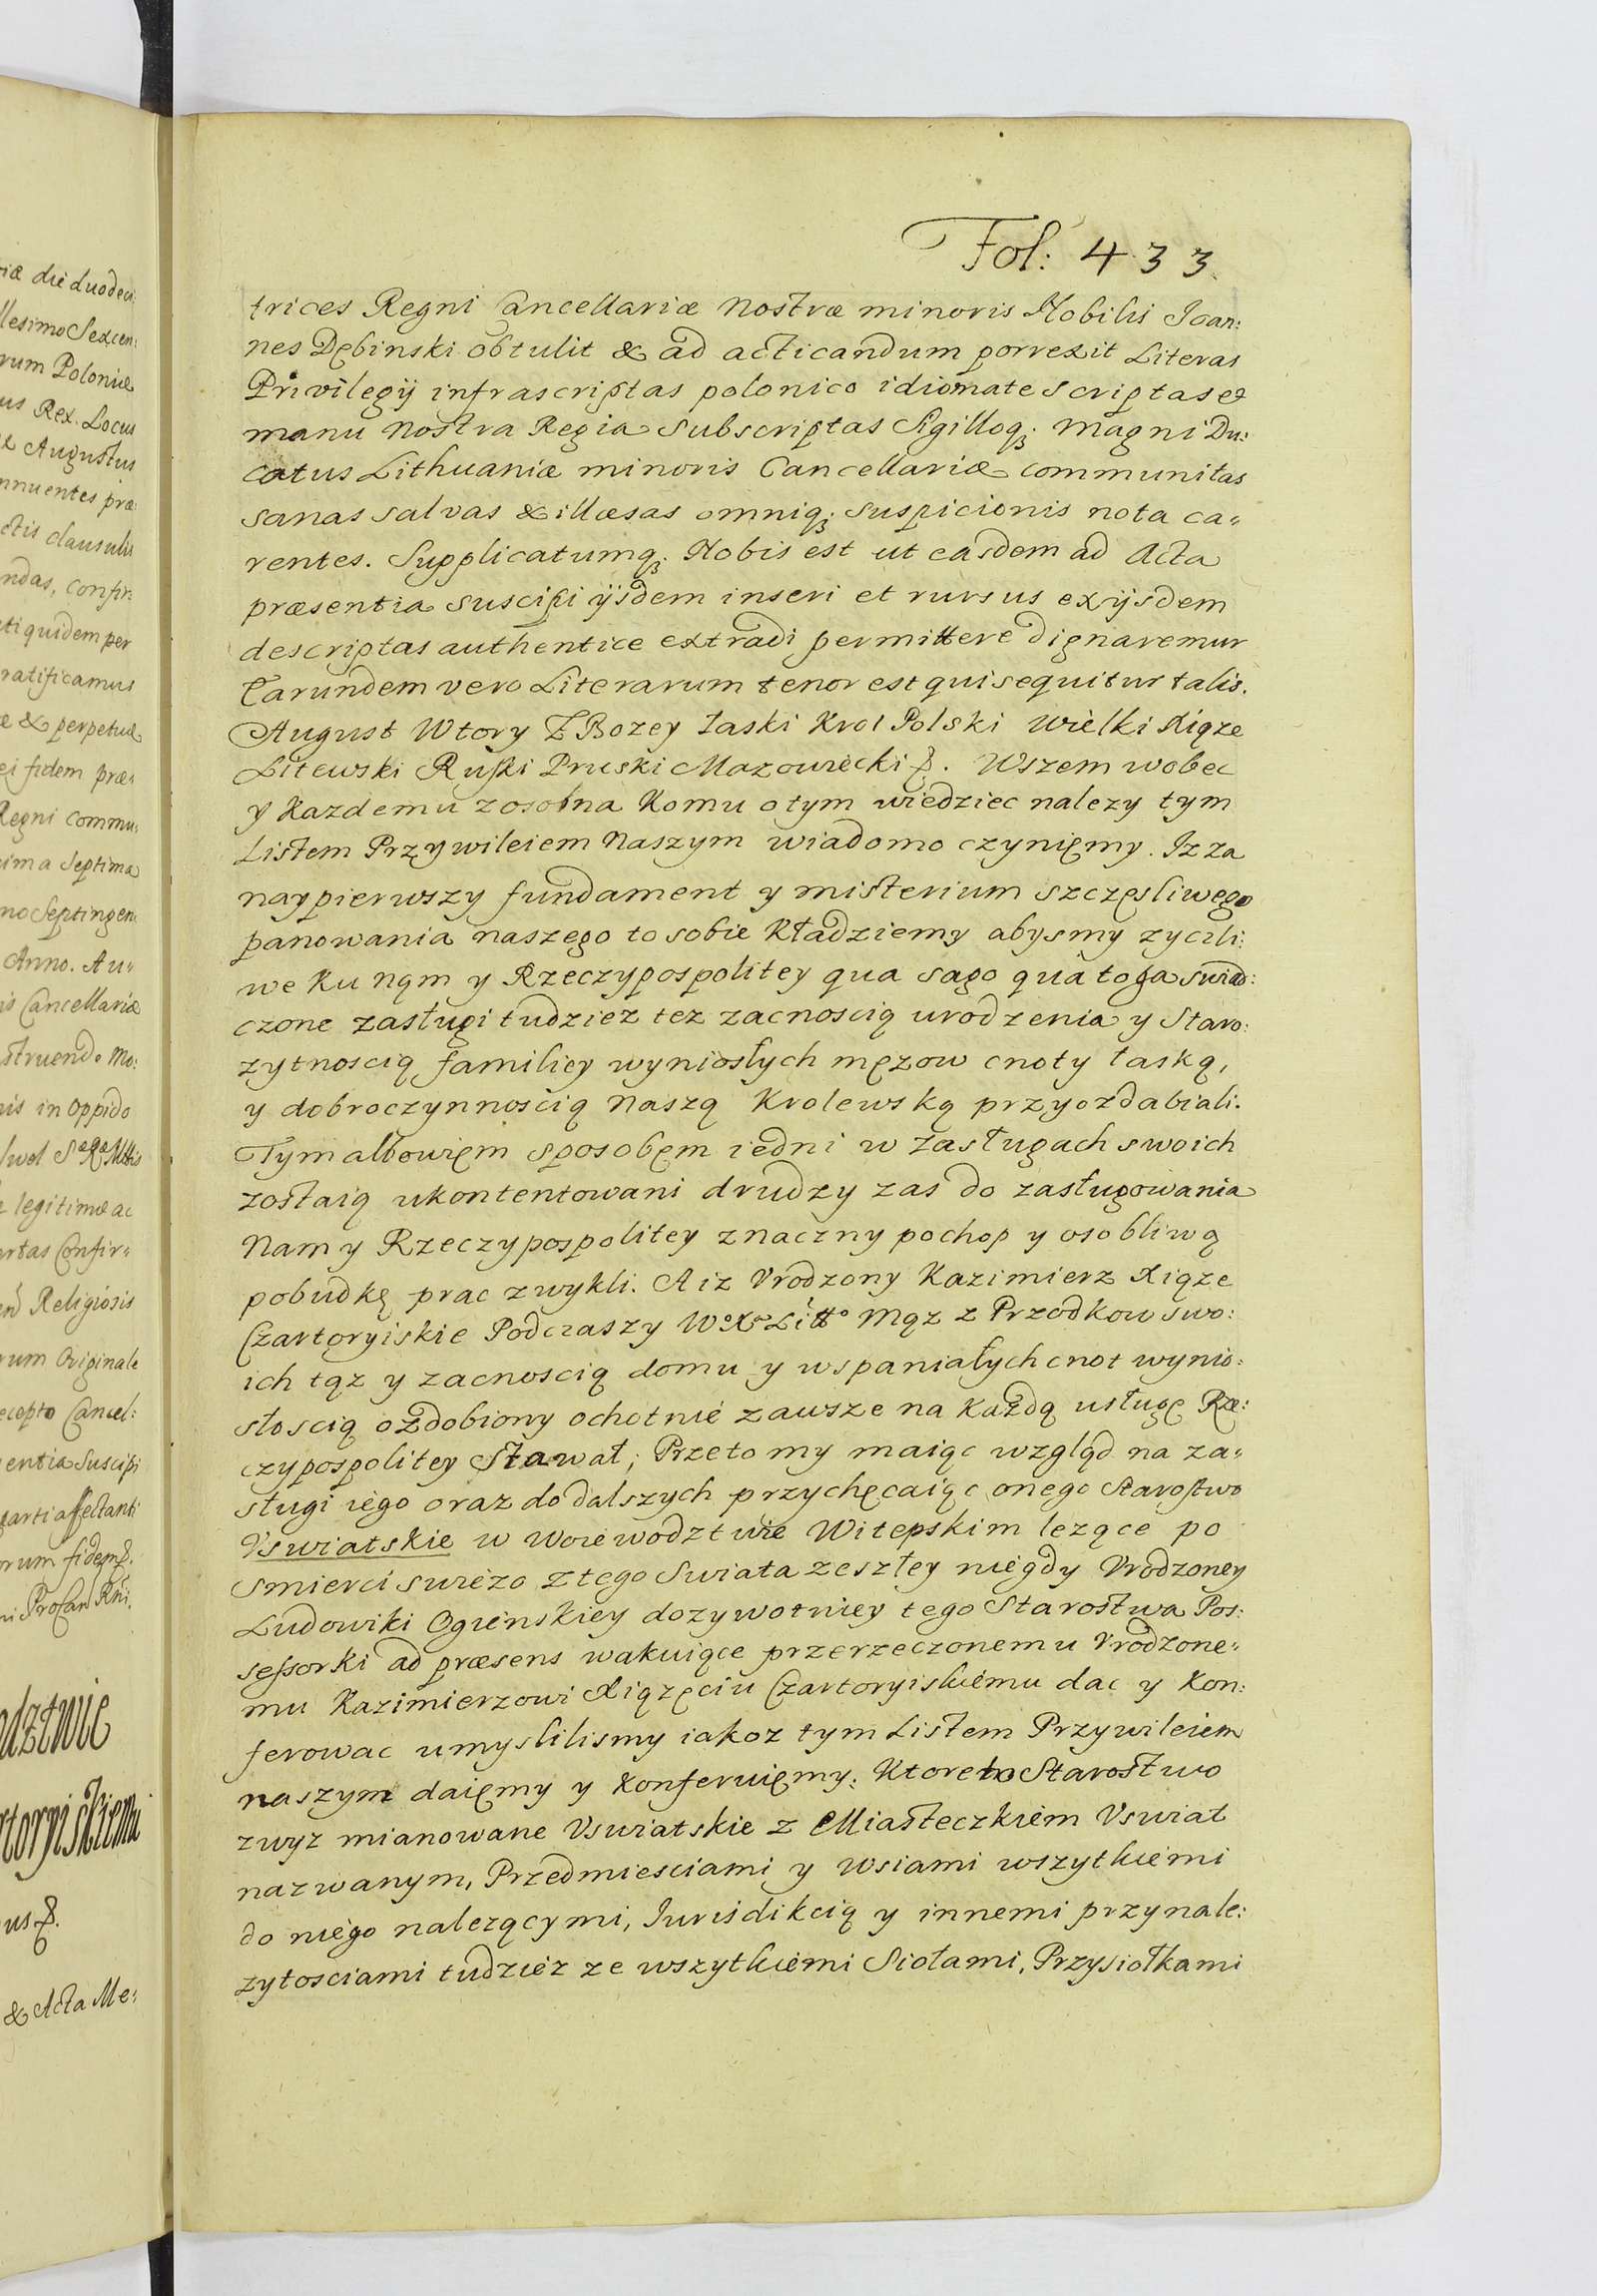 Fol: 433.
trices Regni Cancellariæ Nostræ minoris Nobilis Ioan:
nes Dębinski obtulit & ad acticandum porrexit Literas
Privilegij infrascriptas polonico idiomate scriptas et
manu Nostra Regia Subscriptas Sigilloq; Magni Du:
catus Lithuaniæ minoris Cancellariæ communitas
sanas salvas & illæsas omniq; suspicionis nota ca„
rentes. Supplicatumq; Nobis est ut easdem ad Acta
præsentia suscipi ijsdem inseri et rursus ex ijsdem
descriptas authentice extradi permittere dignaremur
Earundem vero Literarum tenor est qui sequitur talis.
August Wtory Z Bozey łaski Krol Polski Wielki Xiąze
Litewski Ruski Pruski Mazowiecki &. Wszem wobec
y Kazdemu zosobna Komu o tym wiedziec nalezy tym
Listem Przywileiem Naszym wiadomo czynięmy. Iz za
naypierwszy fundament y misterium szczęsliwego
panowania naszego to sobie Kładziemy abysmy zyczli:
we Ku Nąm y Rzeczypospolitey qua sago qua toga swiad:
czone zasługi tudziez tez zacnoscią urodzenia y Staro:
zytnoscią familiey wyniosłych męzow cnoty łaską,
y dobroczynnoscią Naszą Krolewską przyozdabiali.
Tym albowięm sposobęm iedni w zasługach swoich
zostaią ukontentowani drudzy zas do zasługowania
Nam y Rzeczypospolitey znaczny pochop y osobliwą
pobudkę prac zwykli. A iz Vrodzony Kazimierz Xiąze
Czartoryiskie Podczaszy Wo Xo Litto Mąz z Przodkow swo:
ich tąz y zacnoscią domu y wspaniałych cnot wynio:
słoscią ozdobiony ochotnie zawsze na Kazdą usługę Rze:
czypospolitey Stawał; Przeto my maiąc wzgląd na za„
sługi iego oraz do dalszych przychęcaiąc onego Starostwo
Vswiatskie w Woiewodztwie Witepskim lezące po
smierci swiezo z tego Swiata zeszłey niegdy Vrodzoney
Ludowiki Ogienskiey dozywotniey tego Starostwa Pos:
sessorki ad præsens wakuiące przerzeczonemu Vrodzone„
mu Kazimierzowi Xiązęciu Czartoryiskiemu dac y Kon:
ferowac umyslilismy iakoz tym Listem Przywileiem
naszym daięmy y Konferuięmy: Ktore to Starostwo
zwyz mianowane Vswiatskie z Miasteczkiem Vswiat
nazwanym, Przedmiesciami y Wsiami wszytkiemi
do niego nalezącymi, Iurisdikcią y innemi przynale:
zytosciami tudziez ze wszytkiemi Siołami, Przysiołkami